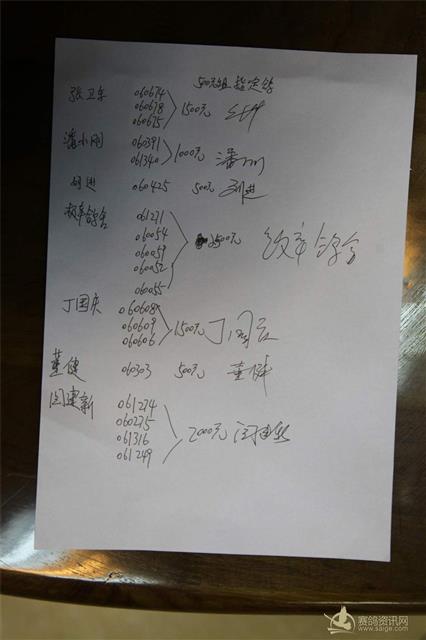 500元组 指定鸽
张卫东 060674
060678 1500元
060675
潘小刚 060391
061340 1000元 潘小刚
刘进 060425 500元 刘进
061271
060054 2500元
060059
060052
060055
丁国庆 060608
060609 1500元 丁国庆
060606
董健 060303 500元 董健
闵建新 061274
060275 2000元 闵建新
061316
061249
赛鸽资讯网
www.saige.com